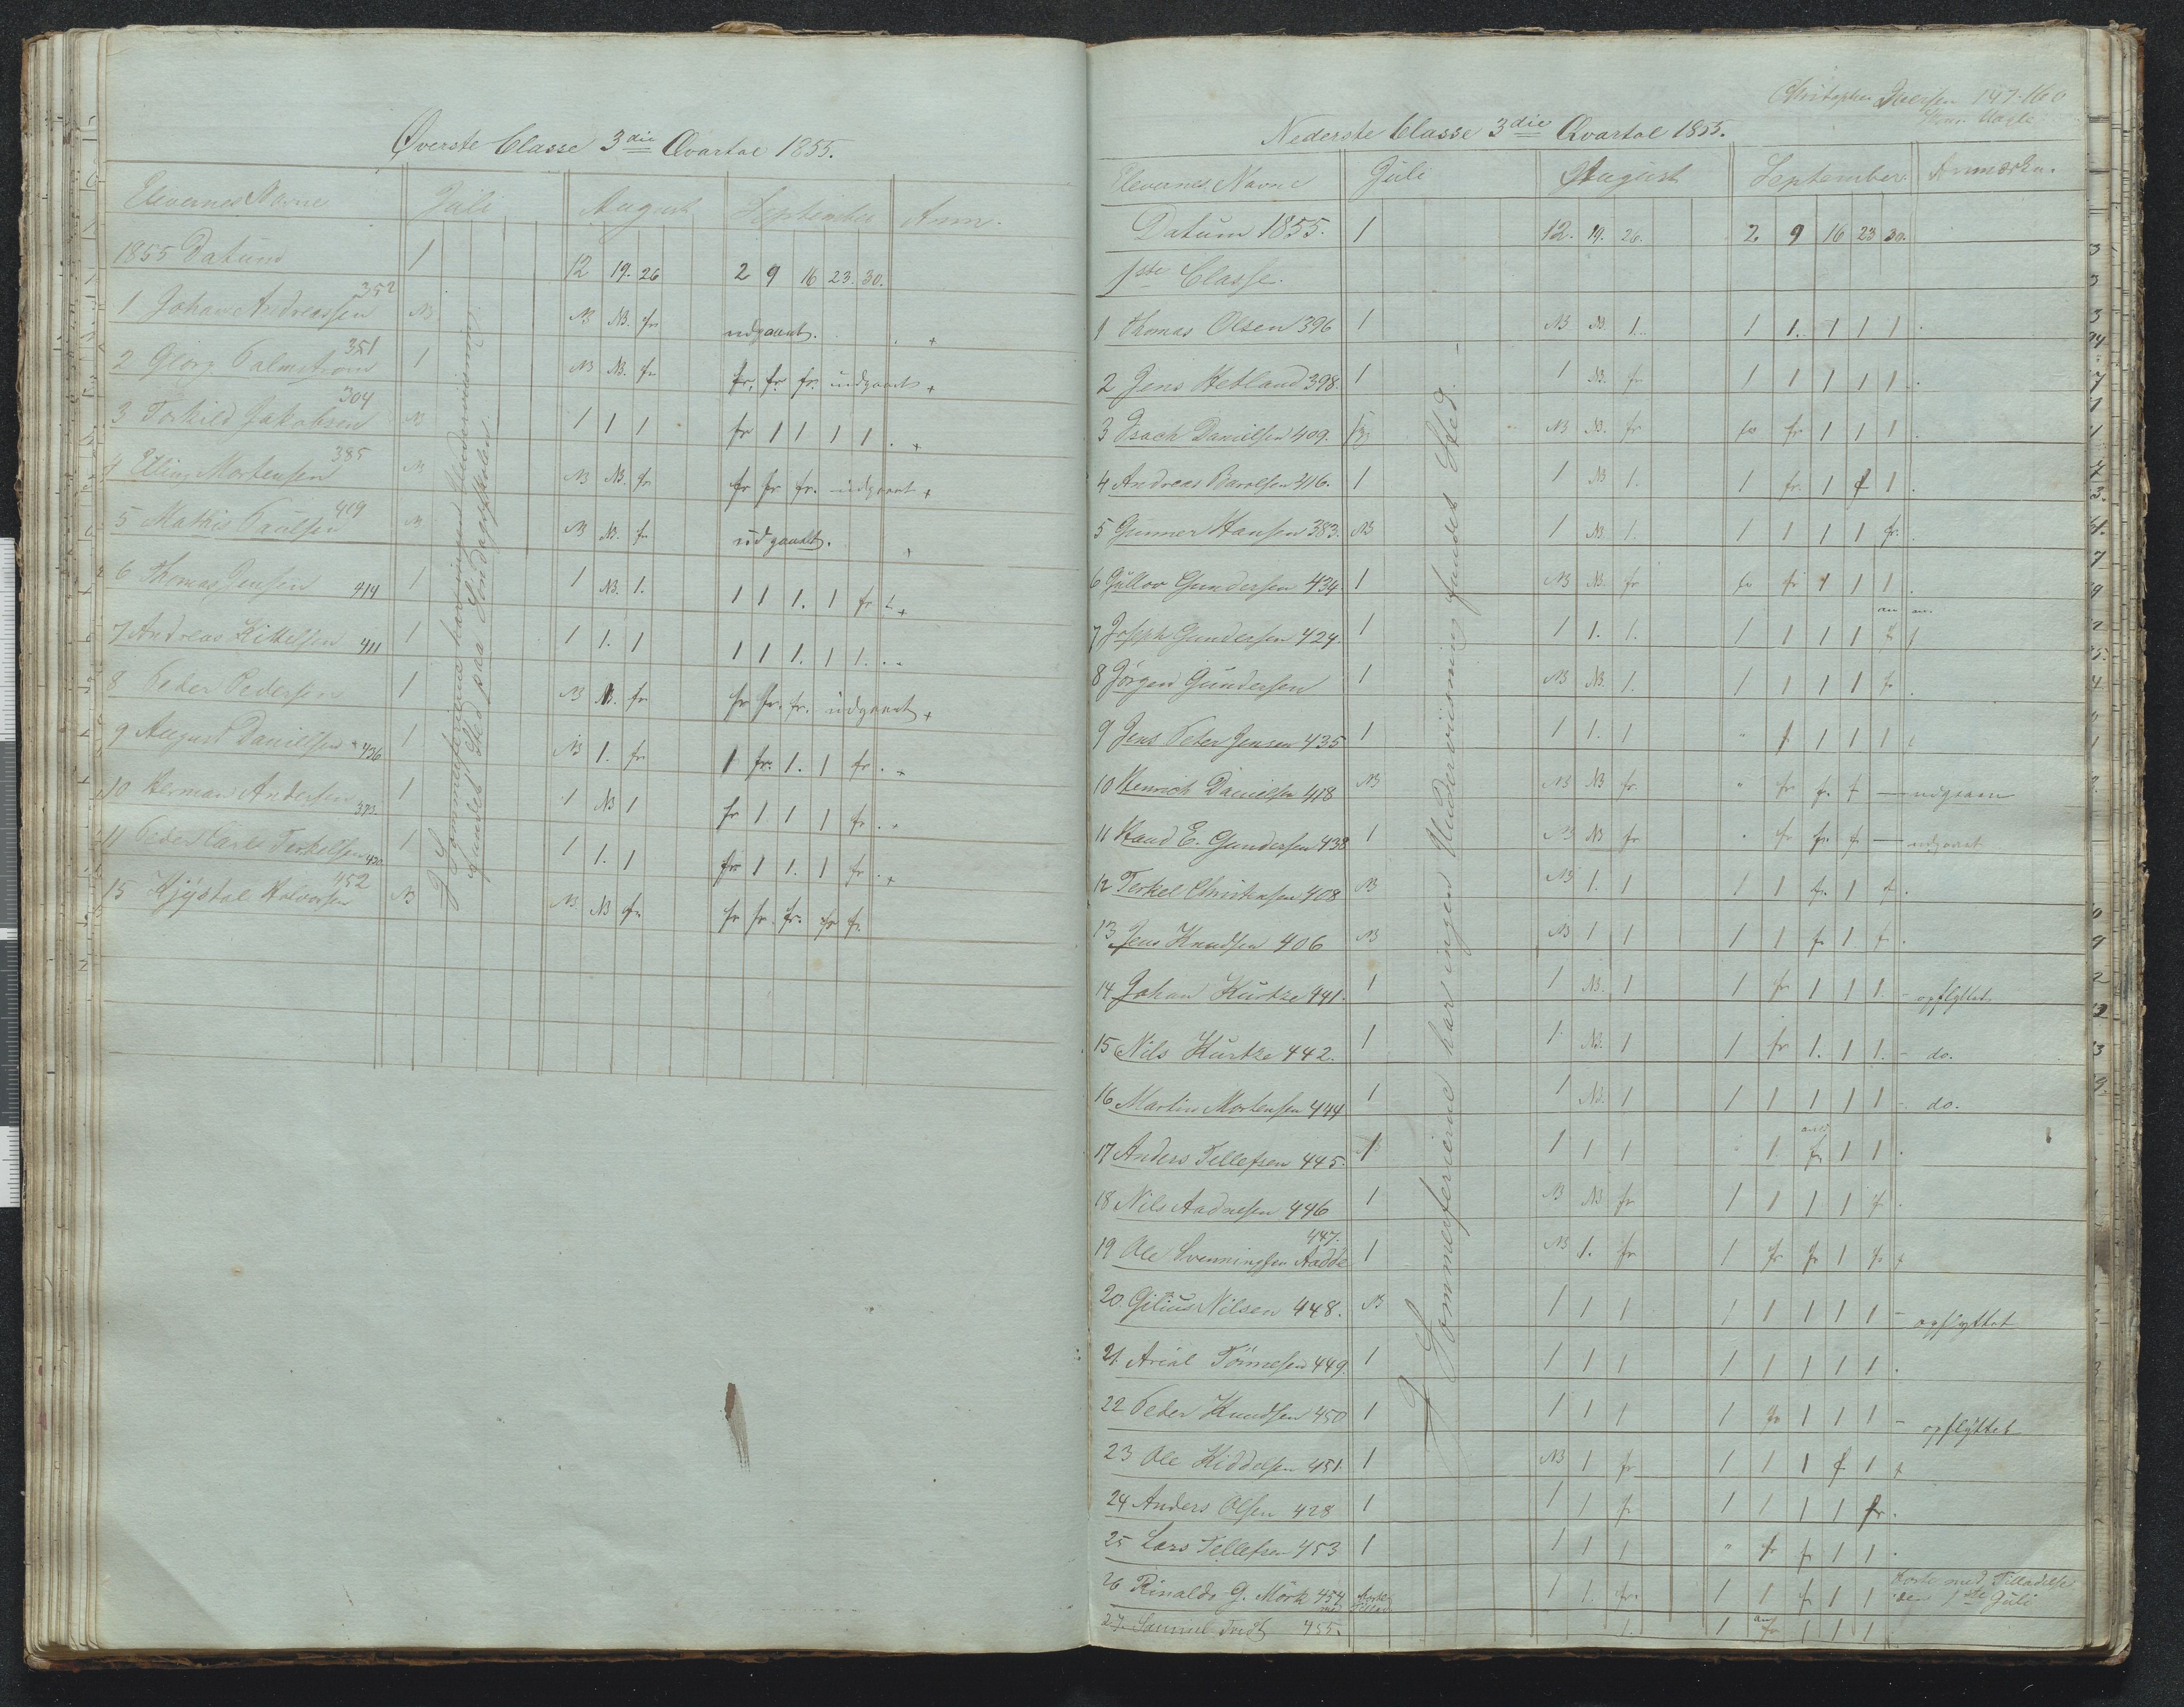 Øverste Classe 3die Qvartal 1855.
Elevernes Navne Juli August September Anm.
1855 Datum 1 12 19. 26 2 9 16 23. 30.
1 Johan Andreassen 352 NB NB NB. fr udgaaet.
2 Georg Palmstrøm 351 1 NB NB. fr fr. fr. fr. udgaaet +
3 Torkild Jakobsen 304 NB 1 1 1 fr 1 1 1 1 . +
4 Elling Mortensen 385 NB NB NB. fr fr fr fr. udgaaet +
5 Mathis Paulsen 419 NB NB NB. fr udgaaet.
6 Thomas Jensen 414 1 1 NB. 1. 1 1 1. 1 fr
7 Andreas Kittelsen 411 1 1 1. 1 1 1 1. 1 1.
8 Peder Pedersen 1 NB NB. fr fr fr. fr. udgaaet +
9 August Danielsen 426 1 NB 1. fr 1 fr. 1. 1 fr.
10 Herman Andersen 373. 1 1 NB 1 fr 1 1 1 fr.
11 Peder Carl Terkelsen 420 1 1 1. 1 fr 1 1. 1 fr. +
15 Kjystal Halvorsen 452 NB NB NB fr fr fr. fr. fr fr.
I Sommerferierne har ingen Undervisning
fundet Sted paa Søndagsskolen.
Christopher Iversen 147.160
Nederste Classe 3die Qvartal 1855.
Elevernes Navne Juli August September Anmærkn.
Datum 1855. 1 12. 19. 26. 2 9 16 23 30.
1ste Classe.
1 Thomas Olsen 396 1 NB NB. 1.. 1 1. 1 1 1
2 Jens Hetland 398. 1 1 NB. fr 1 1 1 1 1
3 Isach Danielsen 409. NB NB. fr fr fr 1 1 1
4 Andreas Baroldsen 416. 1 1 NB 1. 1 fr. 1 f 1
5 Gunner Hansen 383. NB 1 NB. 1. 1 1 1 1 fr.
6 Gullov Gundersen 434. 1 NB NB. fr fr fr 1 1 1
7 Joseph Gundersen 424. 1 1 1. 1. 1 1 1 1 f
8 Jørgen Gundersen 1 NB NB. 1. 1 1 1 1 fr
9 Jens Peter Jensen 435 1 1 1. 1 " f 1 1 1
10 Henrich Danielsen 418 NB NB NB fr. " fr fr. f — udgaaen
11 Knud E. Gundersen 438 1 NB NB fr " fr fr. f — udgaaet
12 Terkel Christensen 408 NB NB 1. 1 1 1 fr. 1 f.
13 Jens Knudsen 406 NB NB 1 1 1 1 fr 1. f.
14 Johan Kurtze 441. 1 1 NB. 1 1 fr 1 1 1. - opflyttet.
15 Nils Kurtze 442. 1 1. NB. 1 1 fr 1. 1 1. - do.
16 Martin Mortensen 444 1 1 NB. 1 1 1 1 1 1 - do.
17 Anders Tellefsen 445. NB 1 1 1 1. fr. 1 1
18 Nils Aadnesen 446 1 NB NB fr 1 1 1 1 fr.
19 Ole Svenningsen Aadde 447. 1 NB 1. fr 1 fr fr 1 fr f
20. Gilius Nilsen 448. NB 1 1 1 1 1 1 1 1 - opflyttet
21. Arial Tønnesen 449. 1 1 1 1 1 1 1 1 1.
22 Peder Knudsen 450 1 1 1 1 1 fr 1 1 1 - opflyttet
23 Ole Kiddelsen 451. 1 NB 1 fr 1 1 1 f 1 f
24 Anders Olsen 428 1 1 1 fr 1 1 1 1 fr.
25 Lars Tellefsen 453 1 1 1 1 " fr fr 1 1
26 Rinaldo G. Mörk 454 1 1. fr. 1 1 fr 1 1 Borte med Tilladelse den 1ste Juli
27. Samuel 455. 1. 1 fr 1 1 1
I Sommerferierne har ingen Undervisning fundet Sted. -